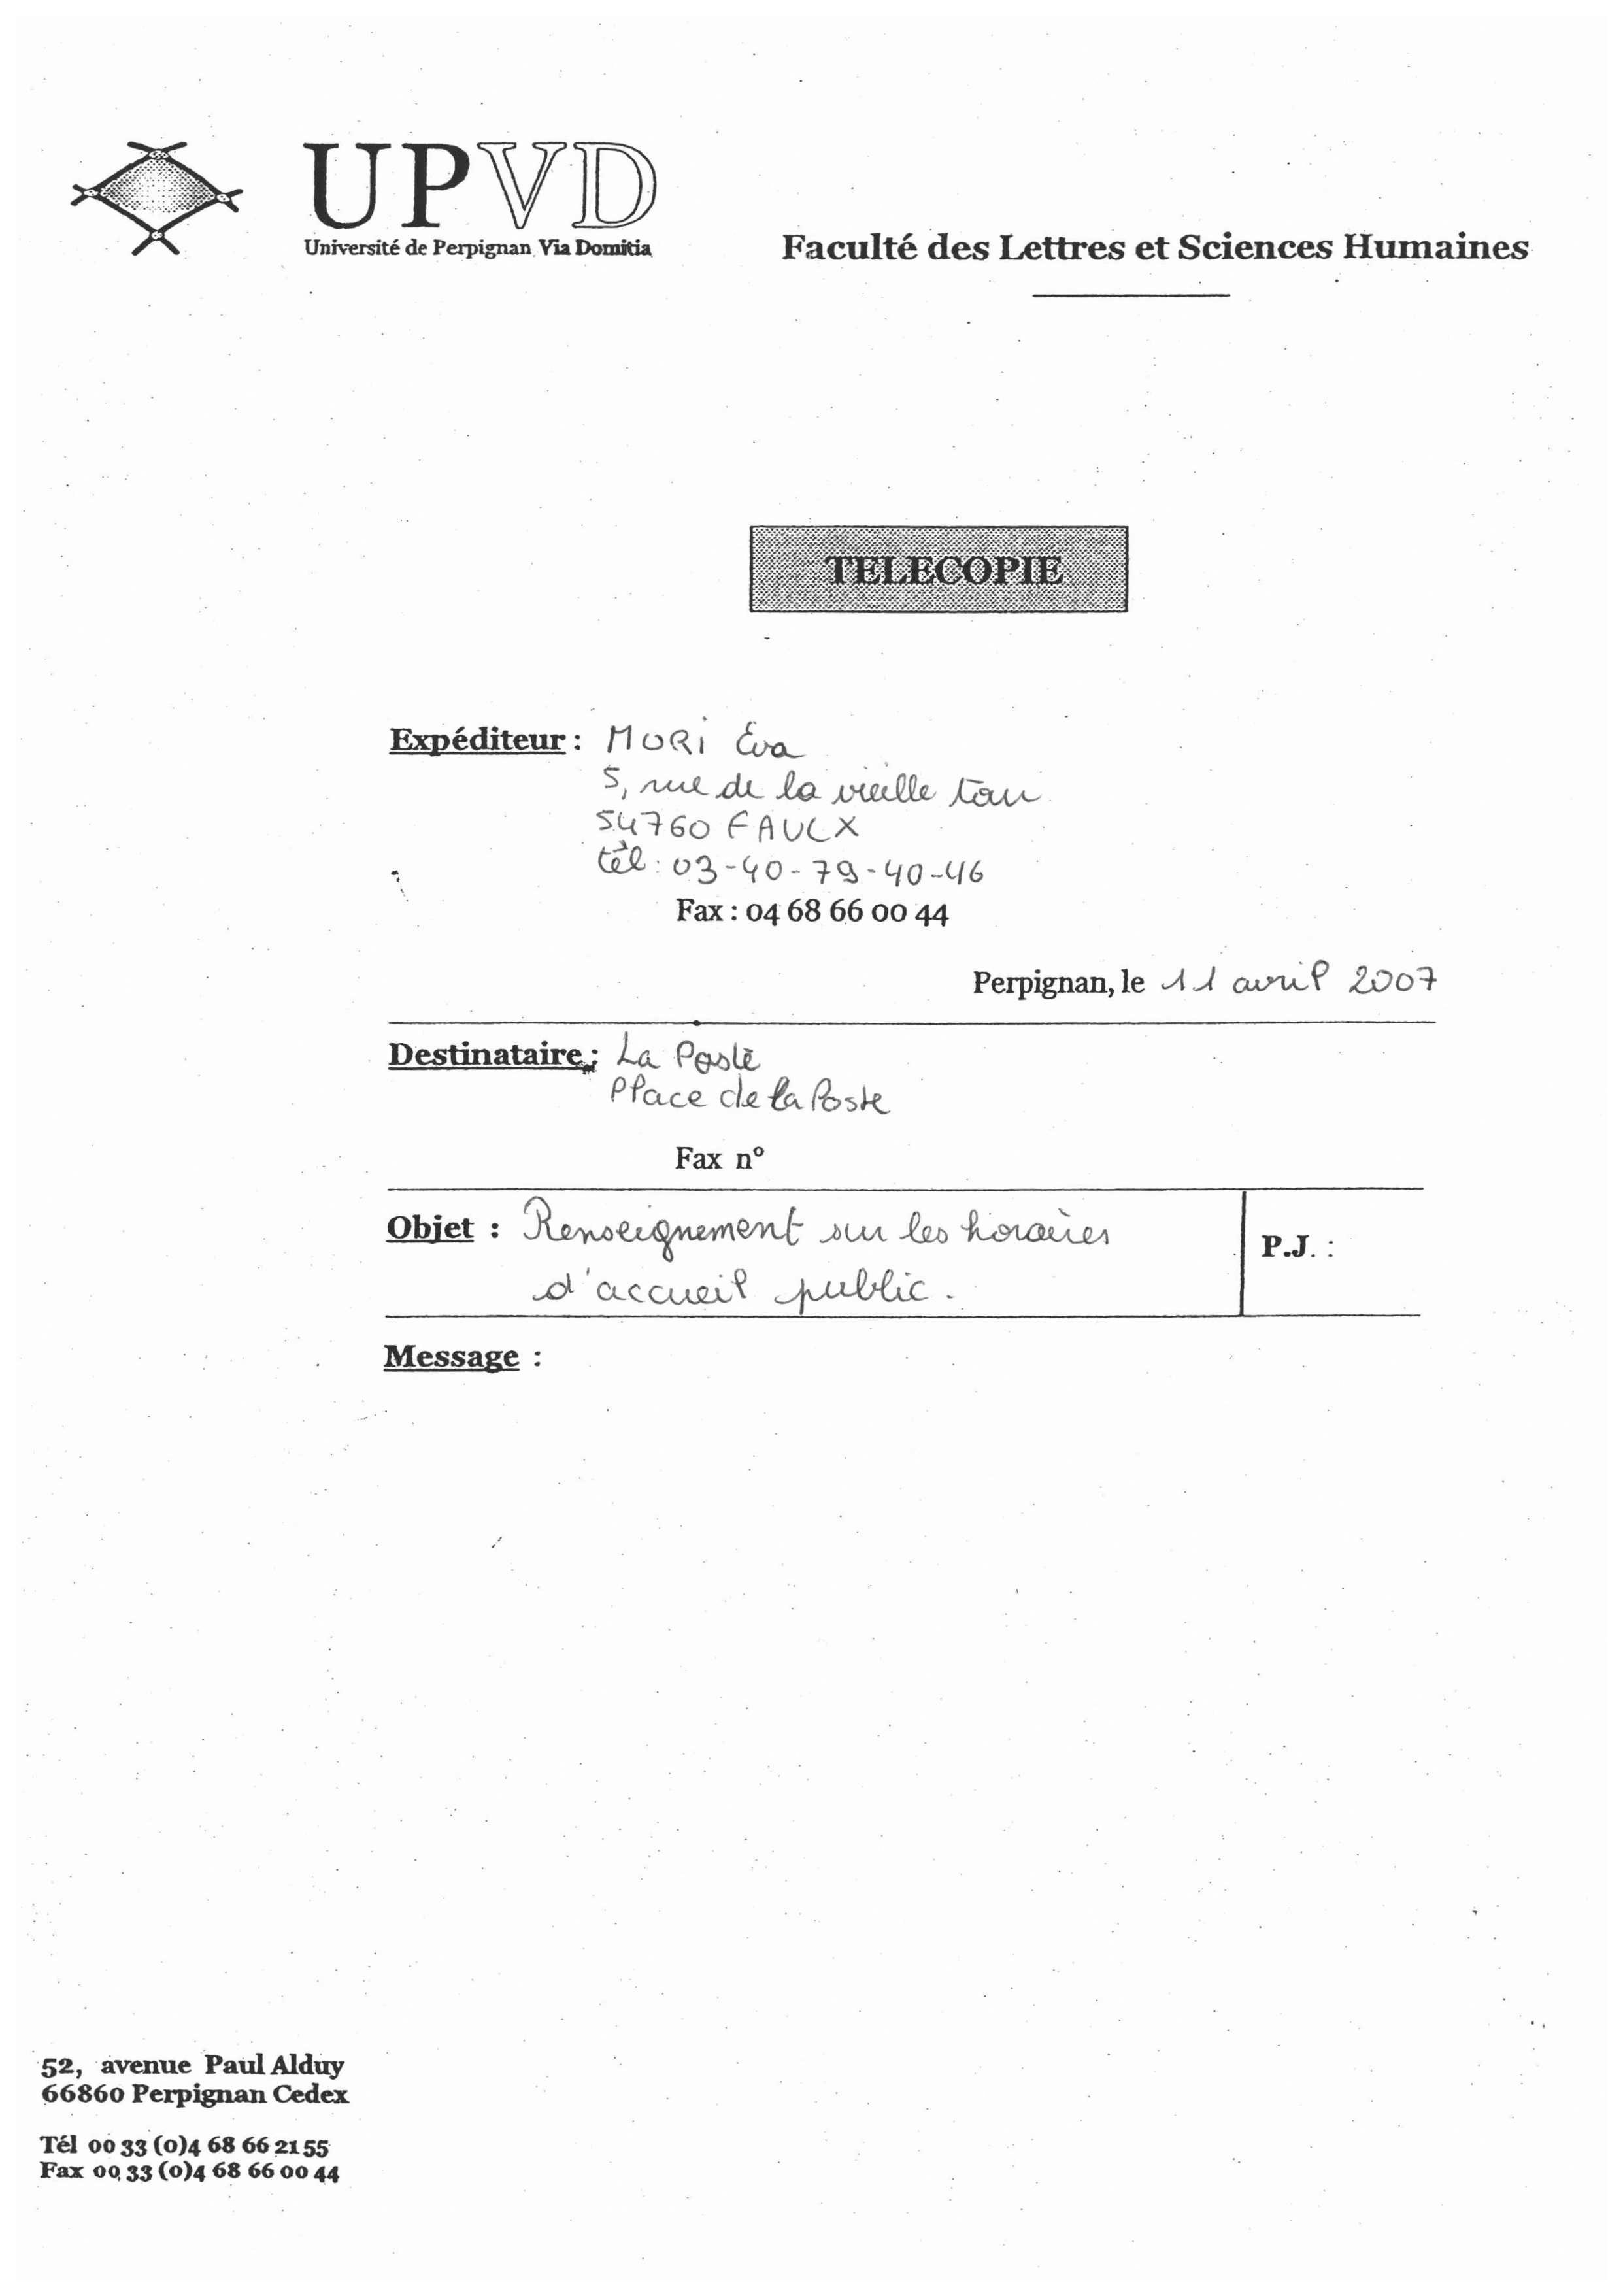 UPVD
Université de Perpignan Via Domitia
Faculté des Lettres et Sciences Humaines
TELECOPIE
Expéditeur : MORI Eva
5, rue de la vieille tour
54760 FAULX
tél : 03-40-79-40-46
Fax : 04 68 66 00 44
Perpignan, le 11 avril 2007
Destinataire : La Poste
Place de la Poste
Fax n°
Objet : Renseignement sur les horaires
d'accueil public.
P.J. :
Message :
52, avenue Paul Alduy
66860 Perpignan Cedex
Tél 00 33 (0)4 68 66 21 55
Fax 00 33 (0)4 68 66 00 44